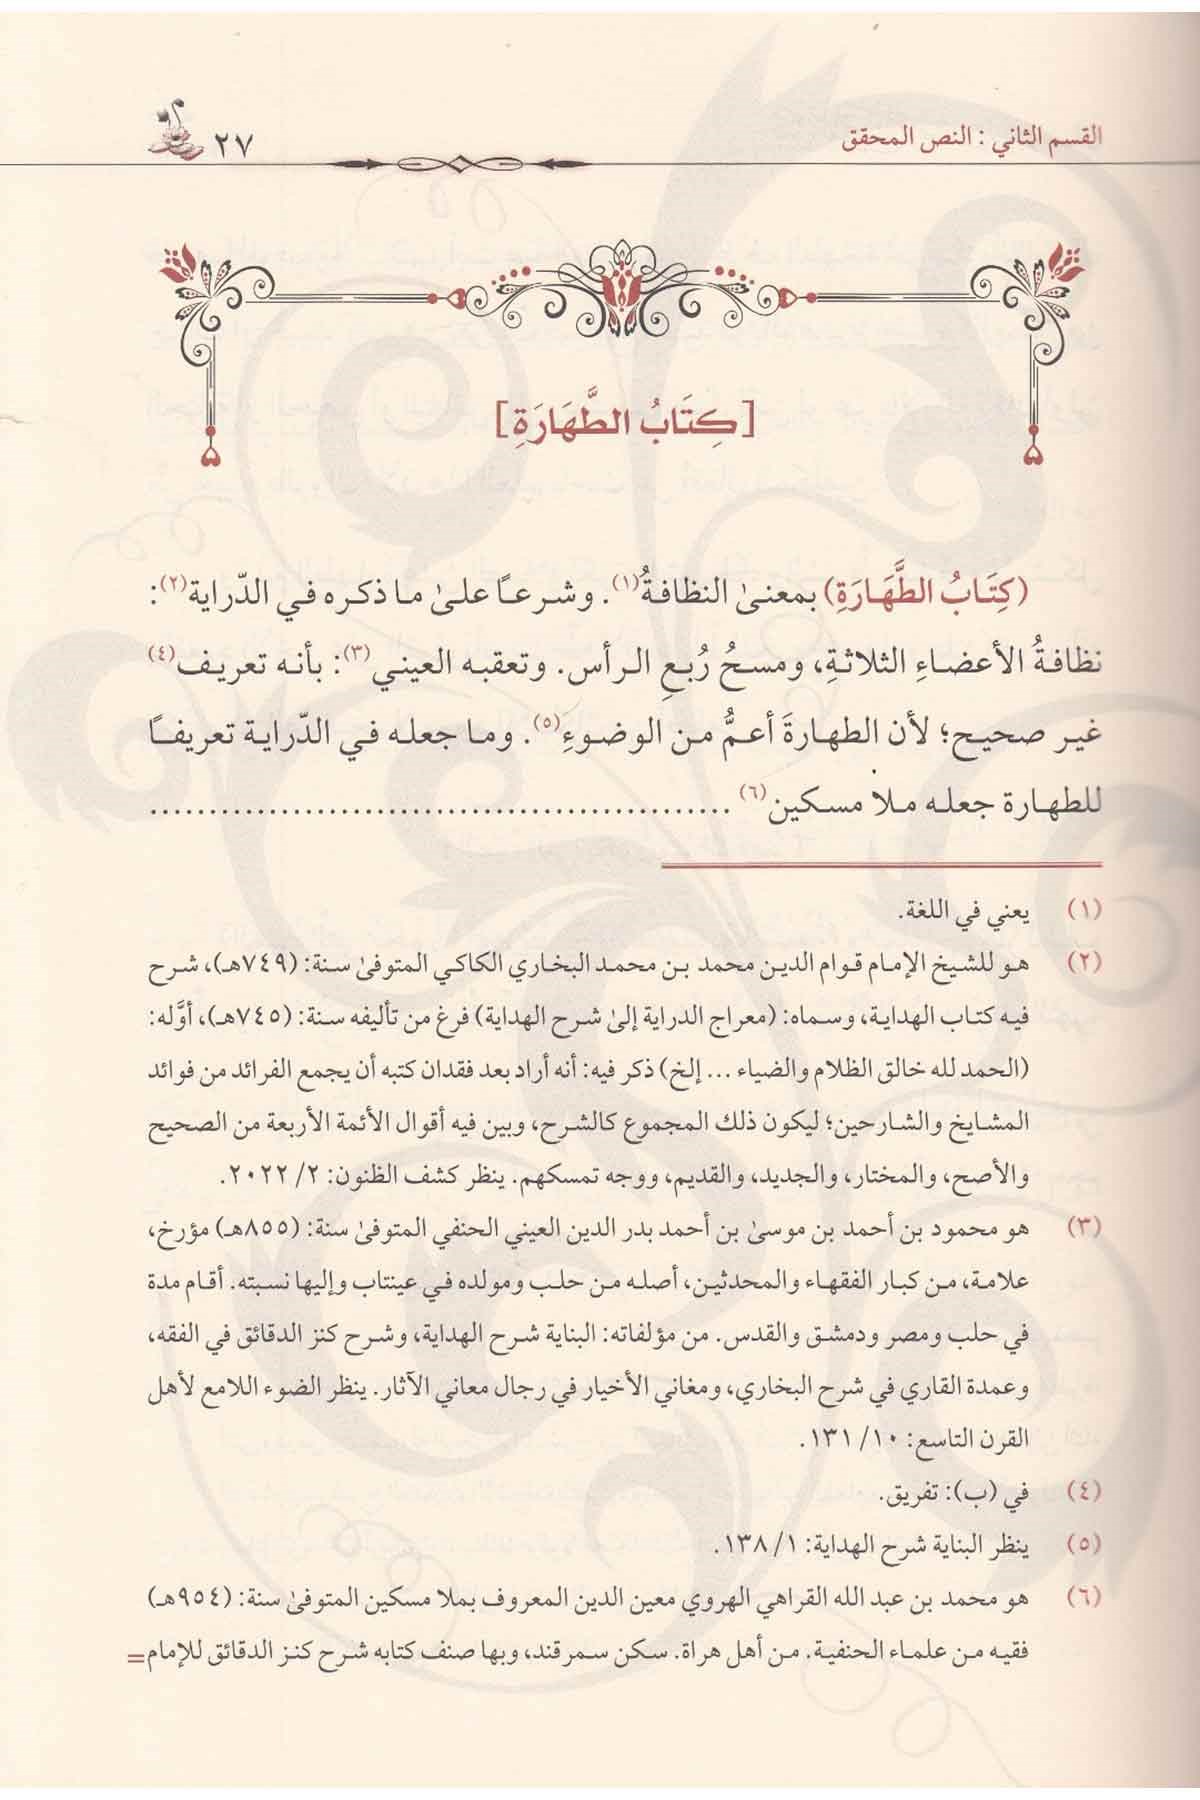 القسم الثاني : النص المحقق
٢٧
[كِتَابُ الطَّهَارَةِ]
(كِتَابُ الطَّهَارَةِ) بمعنىٰ النظافةُ(١). وشرعًا علىٰ ما ذكره في الدّراية(٢):
نظافةُ الأعضاءِ الثلاثةِ، ومسحُ رُبعِ الرأس. وتعقبه العيني(٣): بأنه تعريف(٤)
غير صحيح؛ لأن الطهارةَ أعمُّ من الوضوءِ(٥). وما جعله في الدّراية تعريفًا
للطهارة جعله ملا مسكين(٦) ................................................
(١) يعني في اللغة.
(٢) هو للشيخ الإمام قوام الدين محمد بن محمد البخاري الكاكي المتوفىٰ سنة: (٧٤٩هـ)، شرح
فيه كتاب الهداية، وسماه: (معراج الدراية إلىٰ شرح الهداية) فرغ من تأليفه سنة: (٧٤٥هـ)، أوَّله:
(الحمد لله خالق الظلام والضياء ... إلخ) ذكر فيه: أنه أراد بعد فقدان كتبه أن يجمع الفرائد من فوائد
المشايخ والشارحين؛ ليكون ذلك المجموع كالشرح، وبين فيه أقوال الأئمة الأربعة من الصحيح
والأصح، والمختار، والجديد، والقديم، ووجه تمسكهم. ينظر كشف الظنون: ٢/ ٢٠٢٢.
(٣) هو محمود بن أحمد بن موسىٰ بن أحمد بدر الدين العيني الحنفي المتوفىٰ سنة: (٨٥٥هـ) مؤرخ،
علامة، من كبار الفقهاء والمحدثين، أصله من حلب ومولده في عينتاب وإليها نسبته. أقام مدة
في حلب ومصر ودمشق والقدس. من مؤلفاته: البناية شرح الهداية، وشرح كنز الدقائق في الفقه،
وعمدة القاري في شرح البخاري، ومغاني الأخيار في رجال معاني الآثار. ينظر الضوء اللامع لأهل
القرن التاسع: ١٠/ ١٣١.
(٤) في (ب): تفريق.
(٥) ينظر البناية شرح الهداية: ١/ ١٣٨.
(٦) هو محمد بن عبد الله القراهي الهروي معين الدين المعروف بملا مسكين المتوفىٰ سنة: (٩٥٤هـ)
فقيه من علماء الحنفية. من أهل هراة. سكن سمرقند، وبها صنف كتابه شرح كنز الدقائق للإمام=